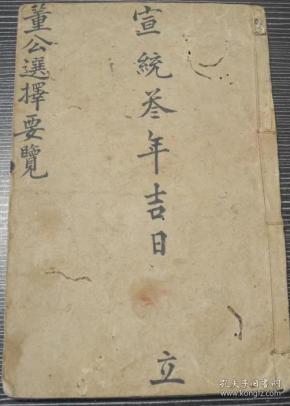 宣統叄年吉日 立
董公選擇要覽
孔夫子旧书网
www.kongfz.com